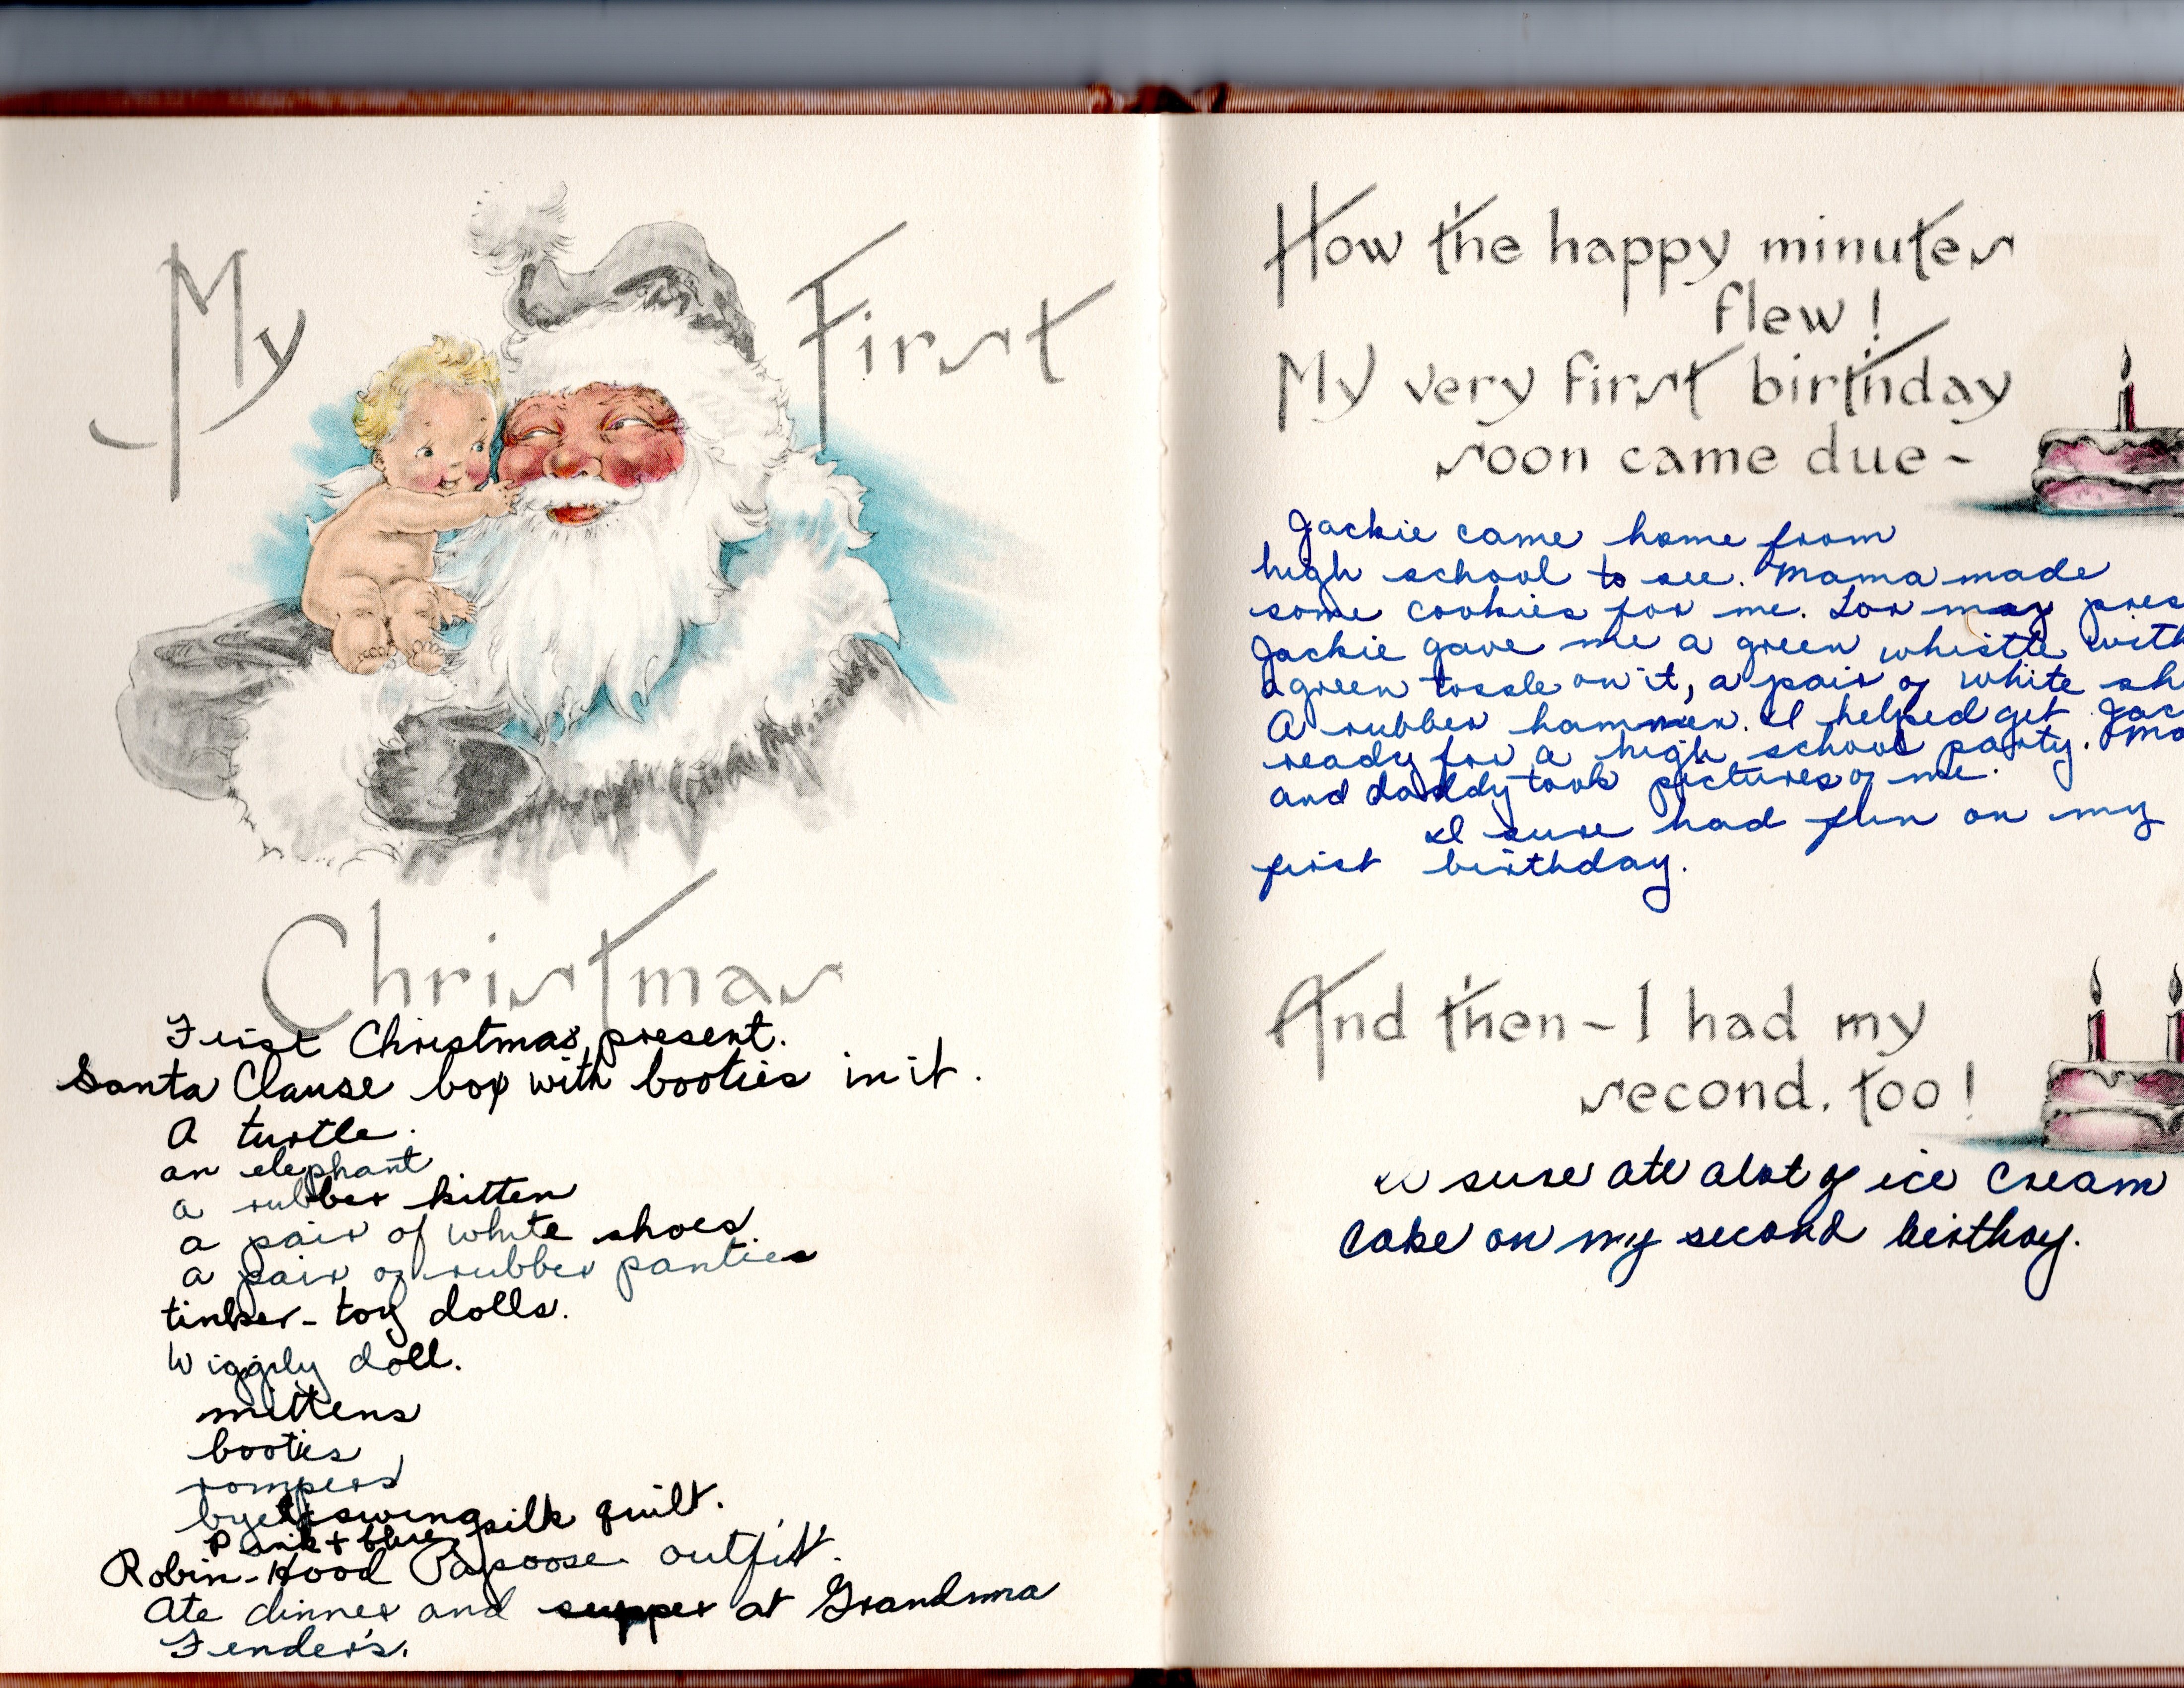 My First
Christmas
First Christmas present.
Santa Clause box with booties in it.
A turtle.
an elephant
a rubber kitten
a pair of white shoes
a pair of rubber panties
tinker-toy dolls.
Wiggily doll.
mittens
booties
rompers
swing
Pink + blue silk quilt.
Robin-Hood Papoose outfit.
Ate dinner and supper at Grandma
Fender's.
How the happy minutes
flew!
My very first birthday
soon came due-
Jackie came home from
high school to see. Mama made
some cookies for me. For my pres
Jackie gave me a green whistle with
a green tossle on it, a pair of white sh
A rubber hammer. I helped get Jac
ready for a high school party. Ma
and daddy took pictures of me.
I sure had fun on my
first birthday.
And then-I had my
second, too!
I sure ate alot of ice cream
cake on my second birthay.